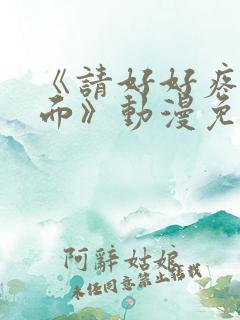 《請好好疼
而》動漫免
阿辭姑娘
未經同意禁止轉載